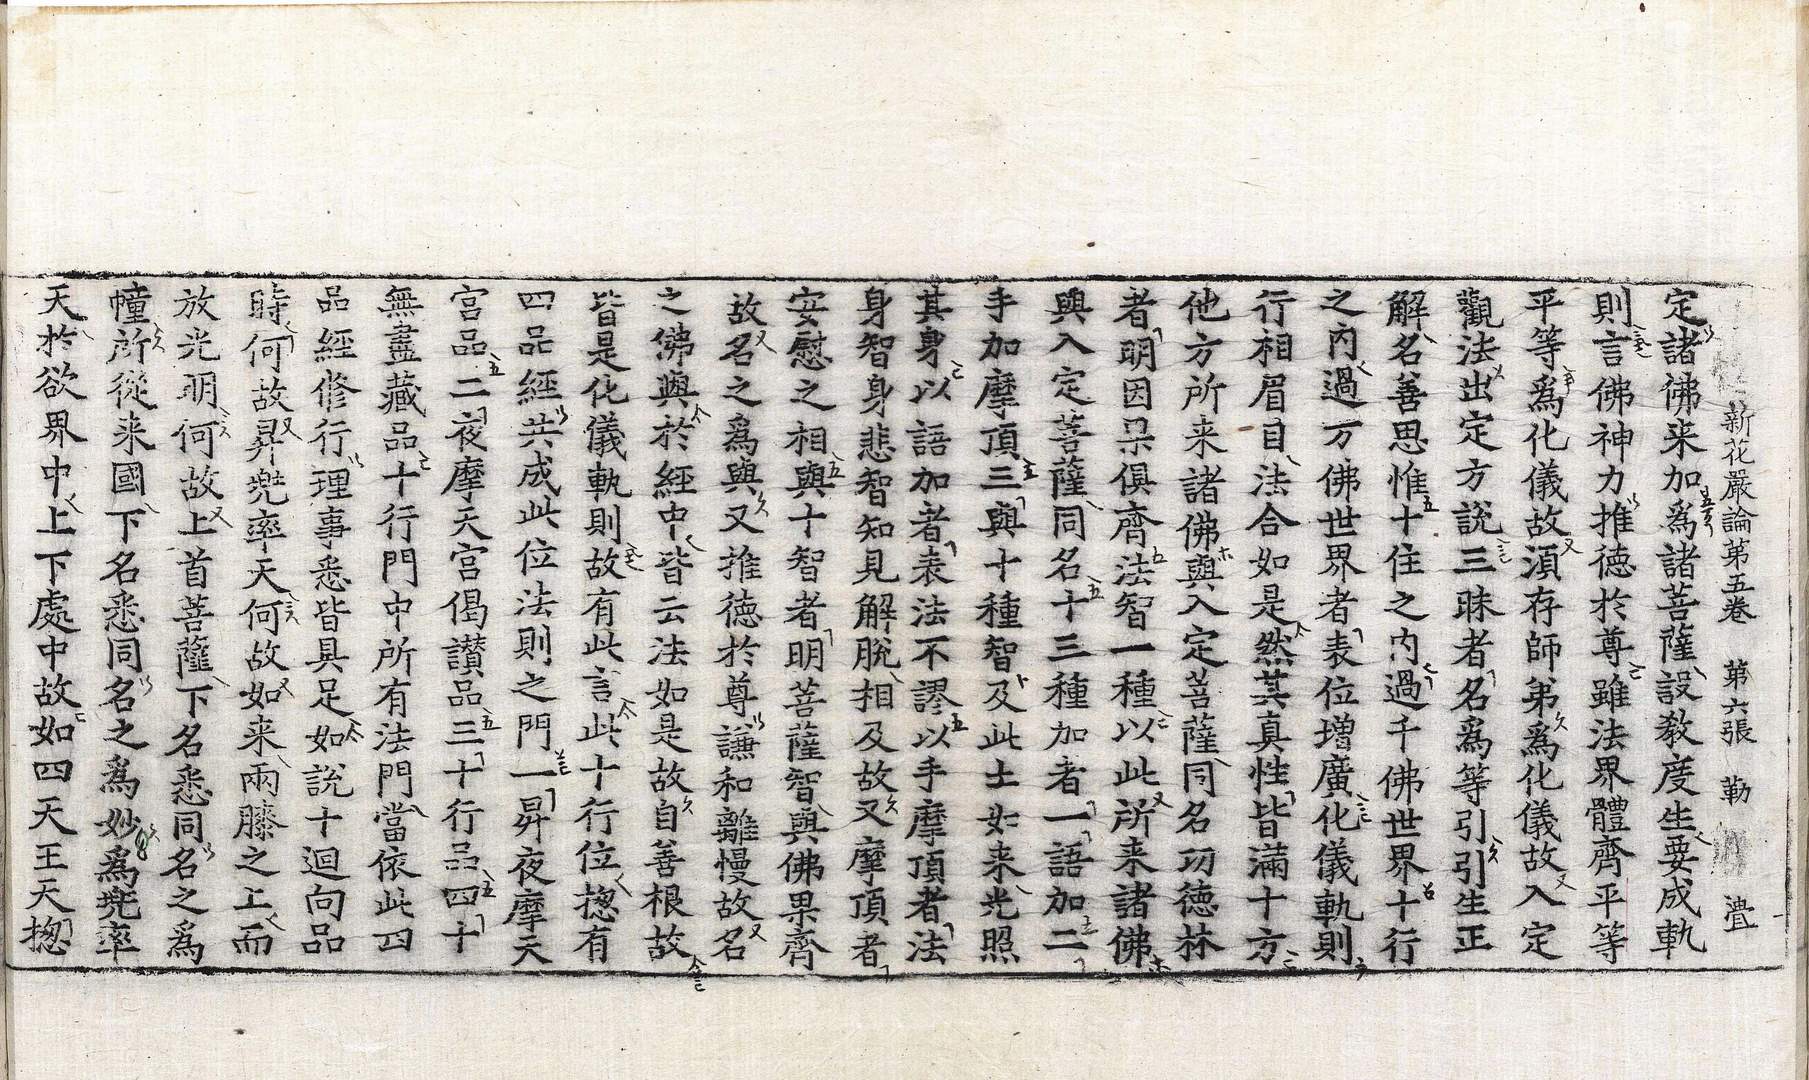 新花嚴論第五卷 第六張 勒 㵛
定諸佛来加爲諸菩薩設敎度生要成軌
則言佛神力推德於尊雖法界體齊平等
平等爲化儀故湏存師弟爲化儀故入定
觀法出定方說三昧者名爲等引引生正
解名善思惟十住之內過千佛世界十行
之內過万佛世界者表位增廣化儀軌則
行相眉目法合如是然其真性皆滿十方
他方所来諸佛與入定菩薩同名功德林
者明因杲俱齊法智一種以此所来諸佛
與入定菩薩同名十三種加者一語加二
手加摩頂三與十種智及此土如来光照
其身以語加者表法不謬以手摩頂者法
身智身悲智知見解脫相及故又摩頂者
安慰之相與十智者明菩薩智與佛果齊
故名之爲與又推德於尊謙和離慢故名
之佛與於經中皆云法如是故自善根故
皆是化儀軌則故有此言此十行位揔有
四品經共成此位法則之門一昇夜摩天
宮品二夜摩天宮偈讚品三十行品四十
無盡藏品十行門中所有法門當依此四
品經修行理事悉皆具足如說十迴向品
時何故昇兠率天何故如来兩膝之上而
放光明何故上首菩薩下名悉同名之爲
幢所從来國下名悉同名之爲妙爲兠率
天於欲界中上下處中故如四天王天揔